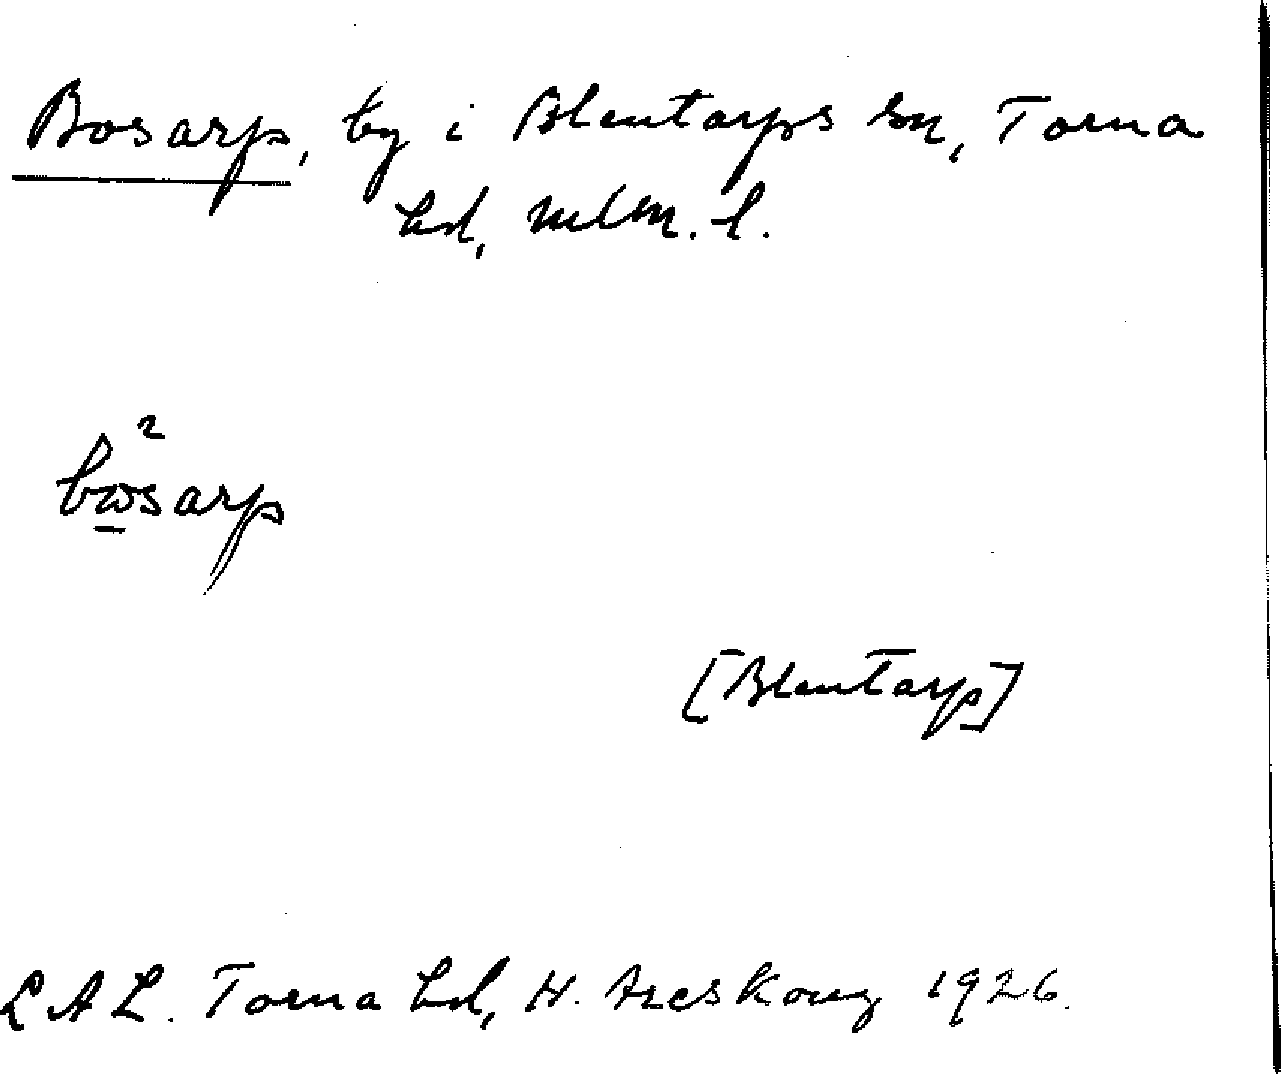 Bosarp, by i Blentarps sn, Torna
hd, Mlm. l.
2
bωsarp
[Blentarp]
LAL. Torna hd, H. Areskoug 1926.